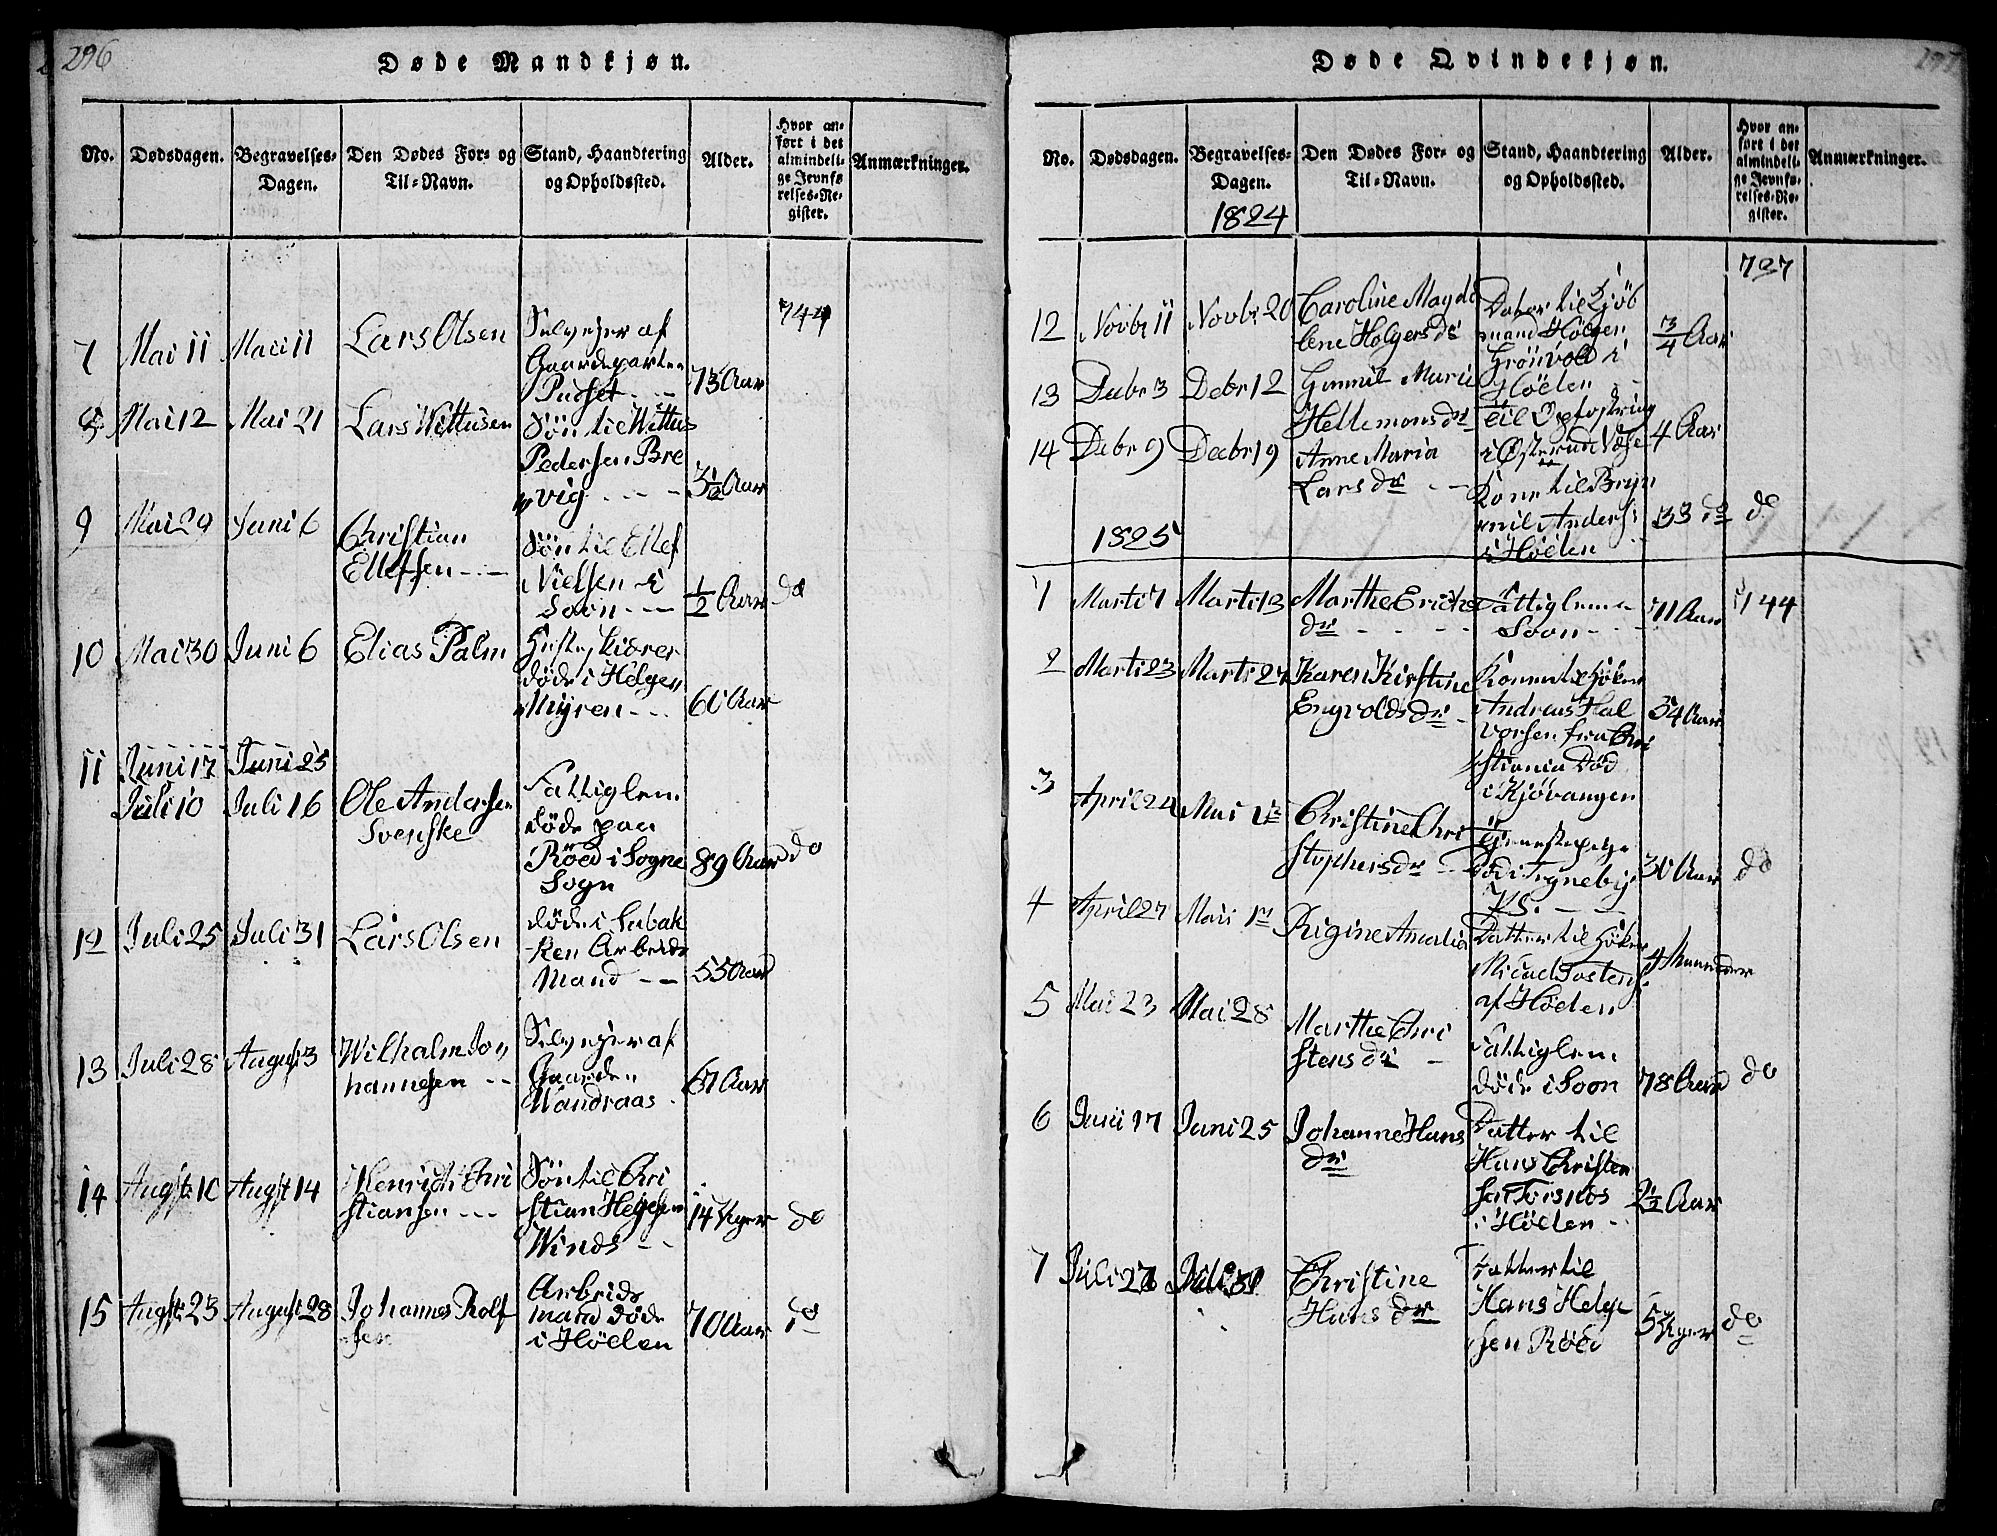 296
Døde Mandkjøn.
No.
Dødsdagen.
Begravelses-
Dagen.
Den Dødes For- og
Til-Navn.
Stand, Haandtering
og Opholdssted.
Alder.
Hvor an-
ført i det
almindeli-
ge Jevnfø
relses-Re-
gister.
Anmærkninger.
7 Mai 11 Maii 11 Lars Olsen
Selvejer af
Gaardeparten
73 Aar
744
8 Mai 12 Mai 21 Lars Wittusen
Søn til Wittus
Pedersen Bre
vig
3½ Aar
9 Mai 29 Juni 6
Christian
Ellefsen
Søn til Ellef
Nielsen i
Soon
½ Aar
do
10 Mai 30 Juni 6 Elias Palm
døde i Helgen
Myren
60 Aar
11 Juni 17 Juni 25
Juli 10 Juli 16
Ole Andersen
Svenske
Fattiglem
døde paa
Røed i Sogne
Sogn
89 Aar
do
12 Juli 25 Juli 31 Lars Olsen
døde i Labak
ken Arbeids
Mand
55 Aar
13 Juli 28 August 3
Wilhalm Jo
hannesen
Selvejer af
Gaarden
Wandraas
67 Aar
14 Augst 10 Augst 14
Henrich Chri
stiansen
Søn til Chri
stian Helgesen
Winds
14 Uger
do
15 Augst 23 August 28
Johannes Rolf
sen
Arbeids
mand døde
i Høelen
70 Aar
do
297
Døde Qvindekjøn.
No.
Dødsdagen.
Begravelses-
Dagen.
1824
Den Dødes For- og
Til-Navn.
Stand, Haandtering
og Opholdssted.
Alder.
Hvor an-
ført i det
almindeli-
ge Jevnfø-
relses-Re-
gister.
Anmærkninger.
727
12 Novbr 11 Novbr 20
Caroline Magda
lene Holgersdr
Datter til Kjøb
mand Holgen
Grønvold i
Høelen
¾ Aar
13 Decbr 3 Decbr 12
Gunnil Marie
Hellemonsdr
til Opfostring
i Østerud
4 Aar
14 Decbr 9 Decbr 19
Anne Maria
Larsdr
Kone til Bryn
mil Anders
i Høelen
33 do
do
1825
1 Marti 7 Marti 13
Marthe Erichs
dr
Fattiglem
Soon
71 Aar
744
2 Marti 23 Marti 27
Karen Kirstine
Engvoldsdr
Konne til Høker
Andreas Hal
vorsen fra Chri
stiania Død
i Kjøvangen
54 Aar
3 April 24 Mai 1te
Christine Chri
stophersdr
Tjenestepige
død i Tegneby
30 Aar
do
4 April 27 Maii 1te
Rigine Amalia
Datter til Høker
af Høelen
4 Maaneder
5 Mai 23 Mai 28
Marthe Chri
stensdr
Fattiglem
døde i Soon
78 Aar
do
6 Junii 17 Juni 25
Johanne Hans
dr
Datter til
Hans Christen
sen Torsnos
i Høelen
2½ Aar
7 Juli 27 Juli 31
Christine
Hansdr
Datter til
Hans Helge
sen Røed
5 Uger
do